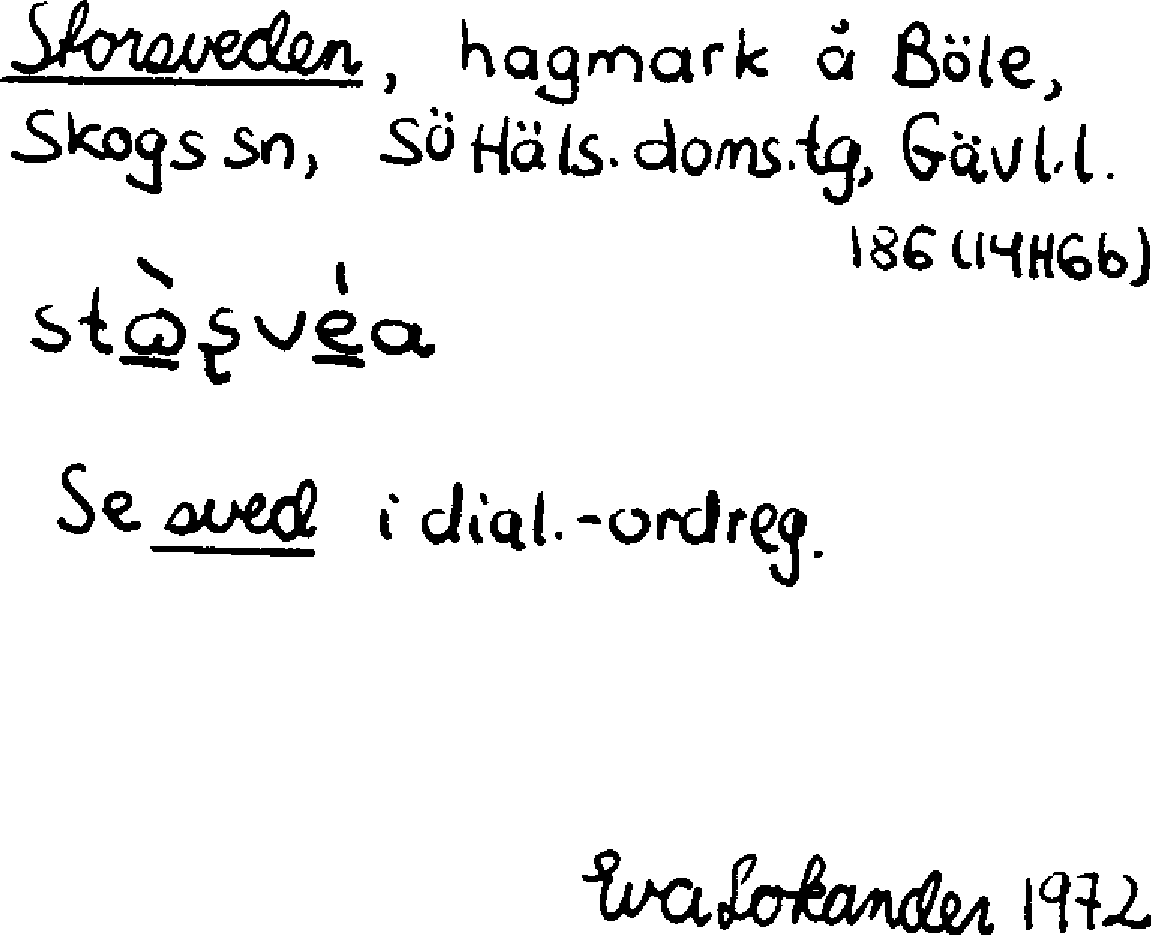 Storsveden, hagmark å Böle,
Skogs sn, SöHäls. doms.tg, Gävl.l.
186 (14H6b)
stɷ̀ʂvéa
Se sved i dial.-ordreg.
Eva Lokander 1972